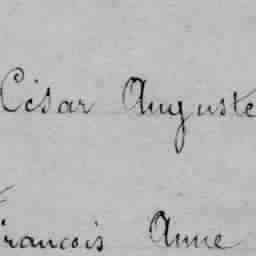 César Auguste
François Anne